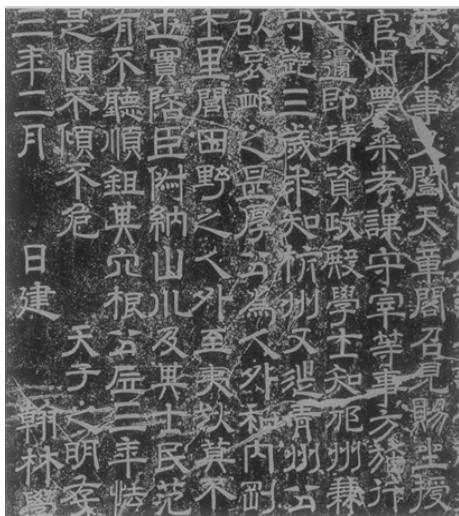 天下事又開天章閣召見賜坐授
官用農桑考課守宰等事方施行
守邊即拜資政殿學士知邠州兼
守鄧三歲求知杭州又徙青州公
所哀卹之甚厚公為人外和內剛
木里閭田野之人外至夷狄莫不
世實陪臣俶納山川及其士民范
有不聽順鉏其穴根公居三年怯
是傾不傾不危 天子之明存
三年二月 日建 翰林學